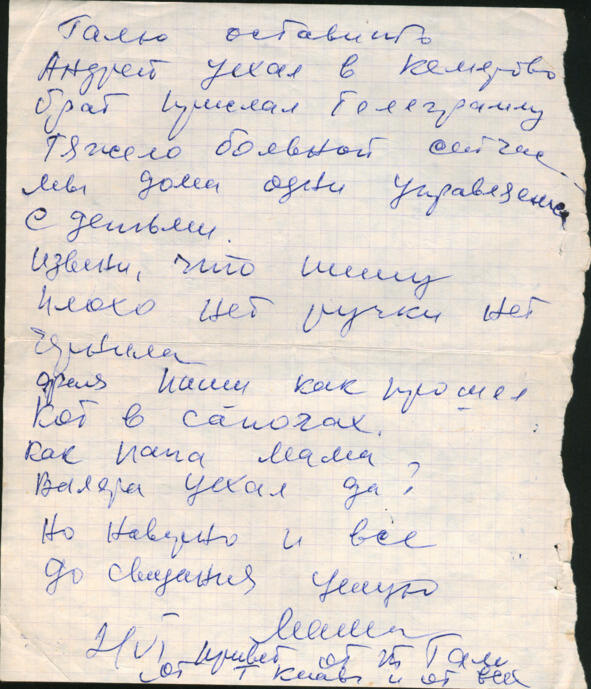 Галю оставить
Андрей уехал в Кемерово
брат прислал телеграмму
тяжело больной сейчас
мы дома одни управляемся
с детьми.
извени, что пишу
плохо нет ручки нет
чернила
пиши как прошел
Кот в сапогах.
как папа мама
Валера уехал да?
Но наверно и все
до свидания целую
Мама
привет от Гали
от т Клавы и от всех